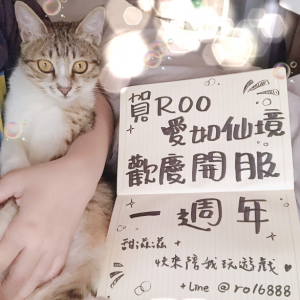 賀ROO
愛如仙境
歡慶開服
一週年
甜滋滋
快來陪我玩遊戲♥
+Line @ro16888